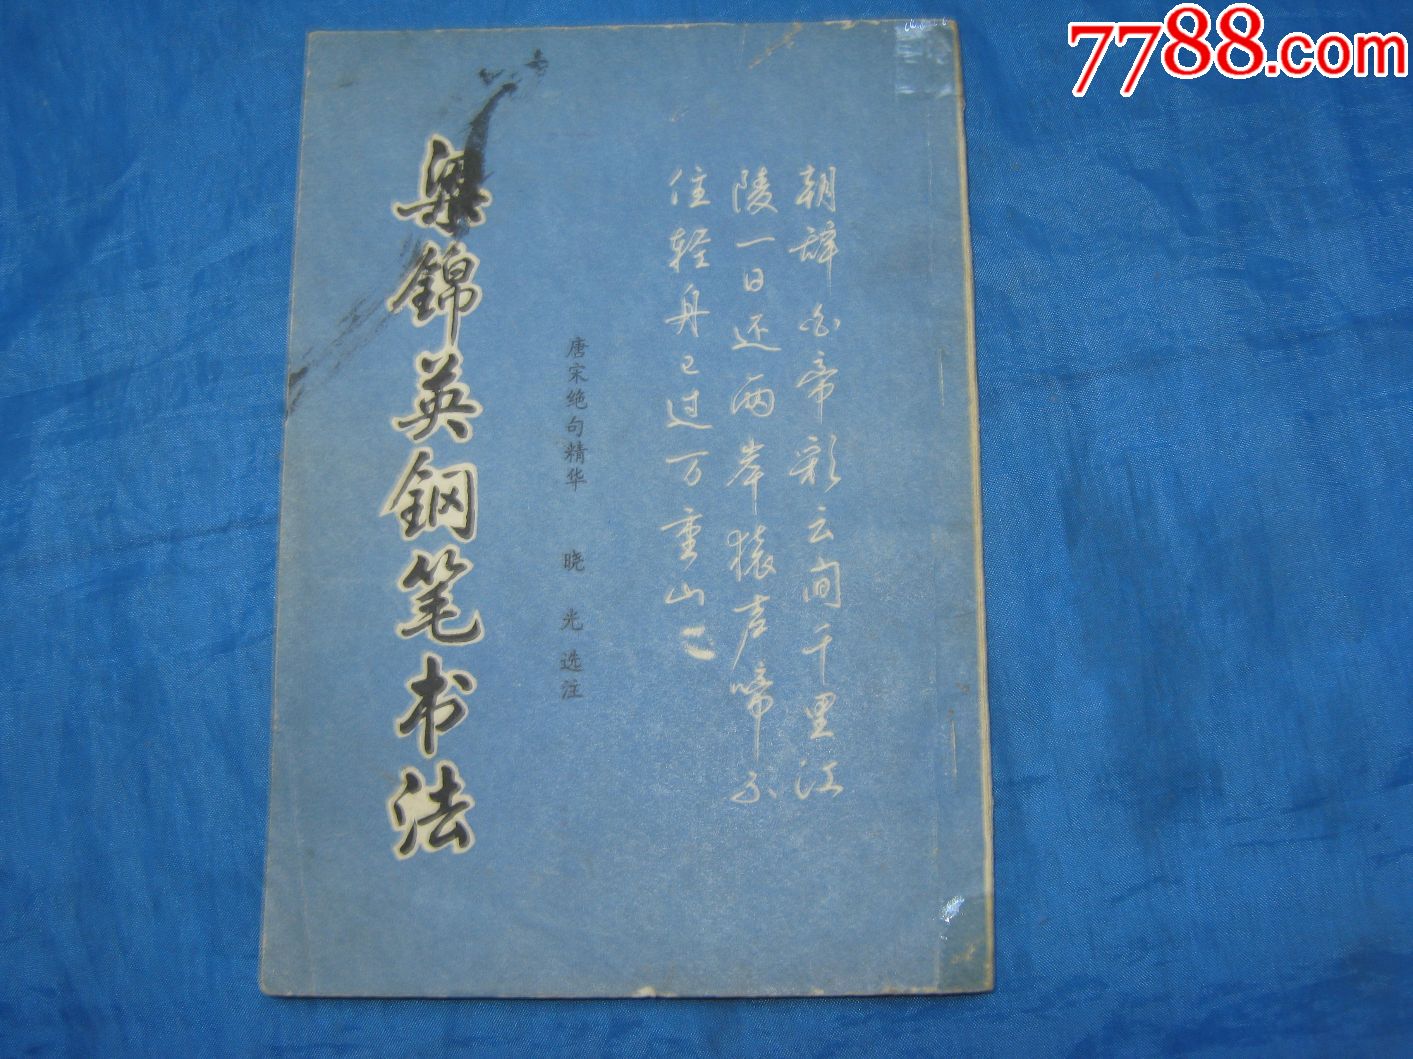 7788.com
朝辞白帝彩云间千里江
陵一日还两岸猿声啼不
住轻舟已过万重山
唐宋绝句精华 晓光选注
梁錦英鋼笔书法